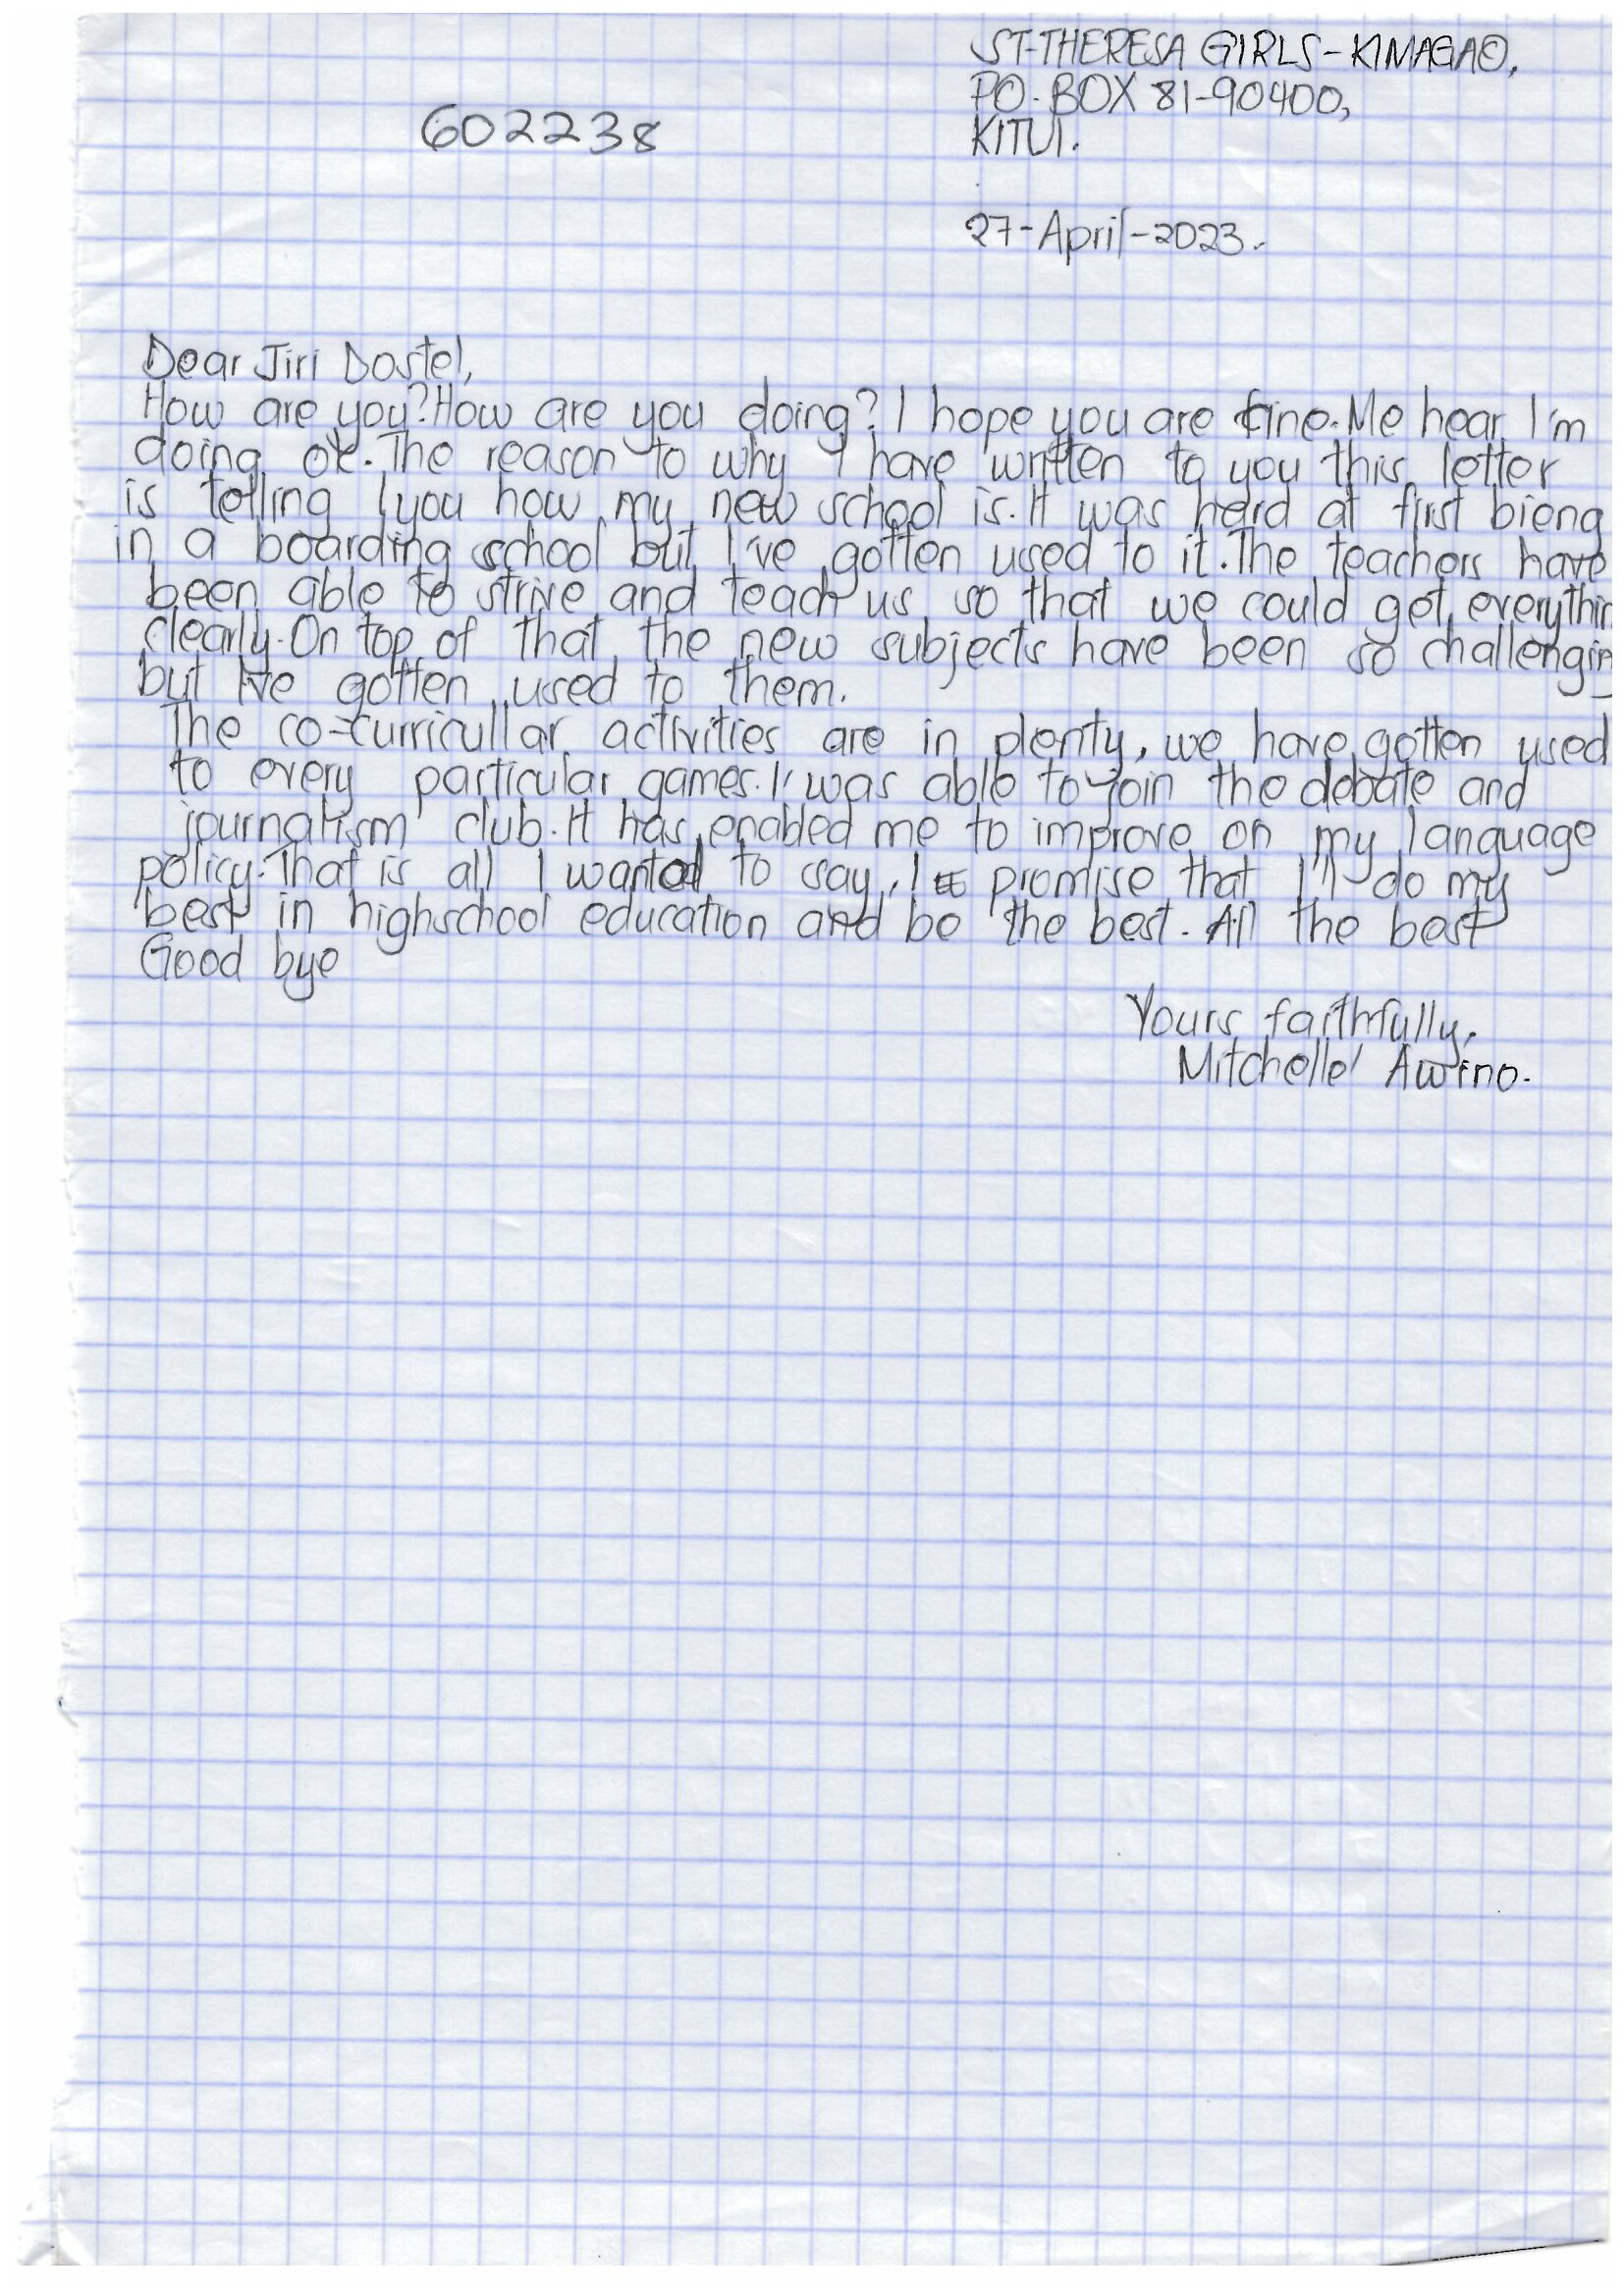 ST-THERESA GIRLS-KIMAGAO,
PO. BOX 81-90400,
602238
KITUI.
27-April-2023.
Dear Jiri Dostel,
How are you? How are you doing? I hope you are fine. Me hear I'm
doing ok. The reason to why I have written to you this letter
is telling you how my new school is. It was hard at first bieng
in a boarding school but I've gotten used to it. The teachers have
been able to strive and teach us so that we could get everythin
clearly. On top of that the new subjects have been so challengin
but I've gotten used to them.
The co-curricullar activities are in plenty, we have gotten used
to every particular games. I was able to join the debate and
journalism club. It has enabled me to improve on my language
policy. That is all I wanted to say, I promise that I'll do my
best in highschool education and be the best. All the best
Good bye
Yours faithfully,
Mitchelle Awino.